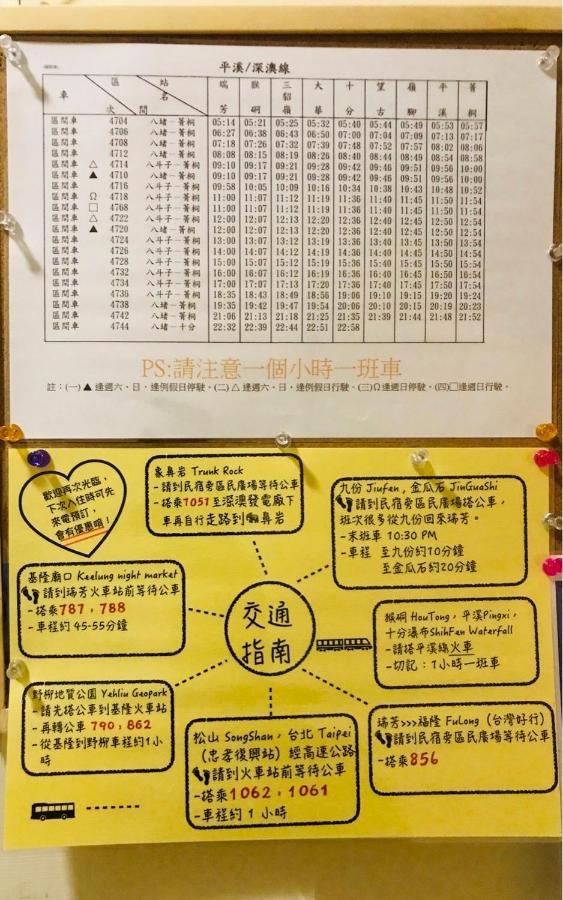 平溪/深澳線
車 次 區 間 站 名 瑞芳 猴硐 三貂嶺 大華 十分 望古 嶺腳 平溪 菁桐
區間車 4704 八堵—菁桐 05:14 05:21 05:25 05:32 05:40 05:44 05:49 05:53 05:57
區間車 4706 八堵—菁桐 06:27 06:38 06:43 06:50 07:00 07:04 07:09 07:13 07:17
區間車 4708 八堵—菁桐 07:18 07:26 07:32 07:39 07:48 07:52 07:57 08:02 08:06
區間車 4712 八堵—菁桐 08:08 08:15 08:19 08:26 08:40 08:44 08:49 08:54 08:58
區間車 △ 4714 八斗子—菁桐 09:10 09:17 09:21 09:28 09:42 09:46 09:51 09:56 10:00
區間車 ▲ 4710 八堵—菁桐 09:10 09:17 09:21 09:28 09:42 09:46 09:51 09:56 10:00
區間車 4716 八斗子—菁桐 09:58 10:05 10:09 10:16 10:34 10:38 10:43 10:48 10:52
區間車 Ω 4718 八斗子—菁桐 11:00 11:07 11:12 11:19 11:36 11:40 11:45 11:50 11:54
區間車 □ 4768 八斗子—菁桐 11:00 11:07 11:12 11:19 11:36 11:40 11:45 11:50 11:54
區間車 △ 4722 八斗子—菁桐 12:00 12:07 12:13 12:20 12:36 12:40 12:45 12:50 12:54
區間車 ▲ 4720 八堵—菁桐 12:00 12:07 12:13 12:20 12:36 12:40 12:45 12:50 12:54
區間車 4724 八斗子—菁桐 13:00 13:07 13:12 13:19 13:36 13:40 13:45 13:50 13:54
區間車 4726 八斗子—菁桐 14:00 14:07 14:12 14:19 14:36 14:40 14:45 14:50 14:54
區間車 4728 八斗子—菁桐 15:00 15:07 15:12 15:19 15:36 15:40 15:45 15:50 15:54
區間車 4732 八斗子—菁桐 16:00 16:07 16:12 16:19 16:36 16:40 16:45 16:50 16:54
區間車 4734 八斗子—菁桐 17:00 17:07 17:13 17:20 17:36 17:40 17:45 17:50 17:54
區間車 4736 八斗子—菁桐 18:35 18:43 18:49 18:56 19:06 19:10 19:15 19:20 19:24
區間車 4738 八堵—菁桐 19:35 19:42 19:47 19:54 20:06 20:10 20:15 20:19 20:23
區間車 4742 八堵—菁桐 21:06 21:13 21:18 21:25 21:35 21:39 21:44 21:48 21:52
區間車 4744 八堵—十分 22:32 22:39 22:44 22:51 22:58
PS:請注意一個小時一班車
註：(一) ▲ 逢週六、日，逢例假日停駛。(二) △ 逢週六、日，逢例假日行駛。(三)Ω逢週日停駛。(四)□逢週日行駛。
歡迎再次光臨，
下次入住時可先
來電預訂，
會有優惠唷！
象鼻岩 Trunk Rock
-請到民宿旁區民廣場等待公車
-搭乘1051至深澳發電廠下
車再自行走路到象鼻岩
九份 Jiufen，金瓜石 JinGuaShi
請到民宿旁區民廣場搭公車，
班次很多從九份回來瑞芳。
-末班車 10:30 PM
-車程 至九份約10分鐘
至金瓜石約20分鐘
基隆廟口 Keelung night market
請到瑞芳火車站前等待公車
-搭乘787，788
-車程約 45-55分鐘
交通
指南
猴硐 HouTong，平溪Pingxi，
十分瀑布ShihFen Waterfall
-請搭平溪線火車
-切記：1小時一班車
野柳地質公園 Yehliu Geopark
-請先搭公車到基隆火車站
-再轉公車 790，862
-從基隆到野柳車程約1小
時
松山 SongShan，台北 Taipei
（忠孝復興站）經高速公路
請到火車站前等待公車
-搭乘1062，1061
-車程約 1 小時
瑞芳>>>福隆 FuLong（台灣好行）
請到民宿旁區民廣場等待公車
-搭乘856